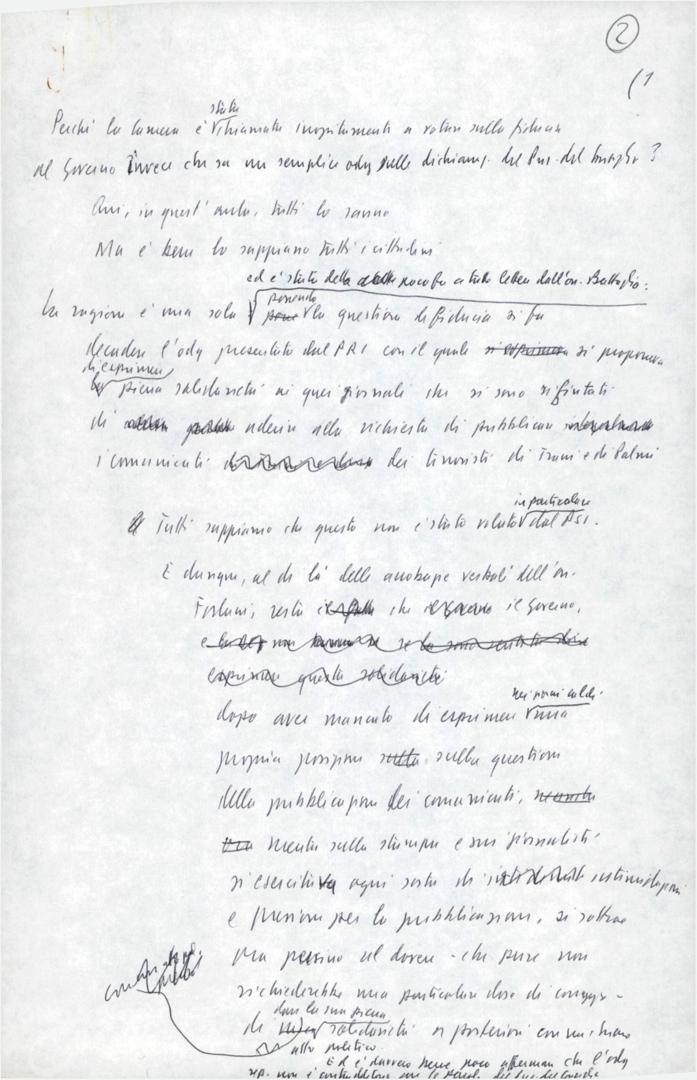 2
(1
stata
Perché la Camera è chiamata inopinatamente a votare sulla fiducia
al Governo invece che su un semplice odg sulle dichiaraz. del Pres. del Consiglio?
Qui, in quest'aula, tutti lo sanno
Ma è bene lo sappiano tutti i cittadini
ed è stata della poco fa a tutte lettere dall'on. Battaglia:
La ragione è una sola ponendo la questione di fiducia si fa
decadere l'odg presentato dal PRI con il quale si proponeva
di esprimere
piena solidarietà ai quei giornali che si sono rifiutati
di aderire alla richiesta di pubblicare
i comunicati dei terroristi di Trani e di Palmi
in particolare
Tutti sappiamo che questo non è stato voluto dal PSI.
E dunque, al di là delle acrobazie verbali dell'on.
Forlani, resta che il Governo,
esprimere questa solidarietà
nei giorni caldi
dopo aver mancato di esprimere una
propria posizione sulla questione
della pubblicazione dei comunicati,
mentre sulla stampa e sui giornalisti
si esercitava ogni sorta di intimidazioni
e pressioni per la pubblicazione, si sottrae
ora persino al dovere - che pure non
richiederebbe una particolare dose di coraggio -
di dare la sua piena
solidarietà a posteriori con un chiaro
atto politico.
Ed è davvero poco affermare che l'odg
rep. non è contraddittorio con le parole del Pres. del Consiglio